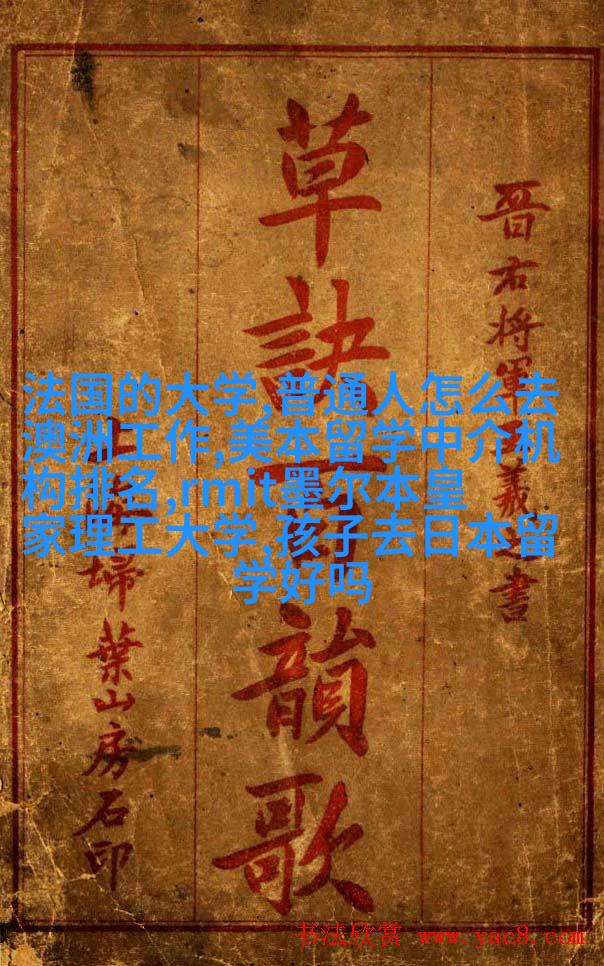 晉右將軍王羲之書
草訣百韻歌
掃葉山房石印
法国的大学,普通人怎么去
澳洲工作,美本留学中介机
构排名,rmit墨尔本皇
家理工大学,孩子去日本留
学好吗
书法欣赏 www.yac8.com